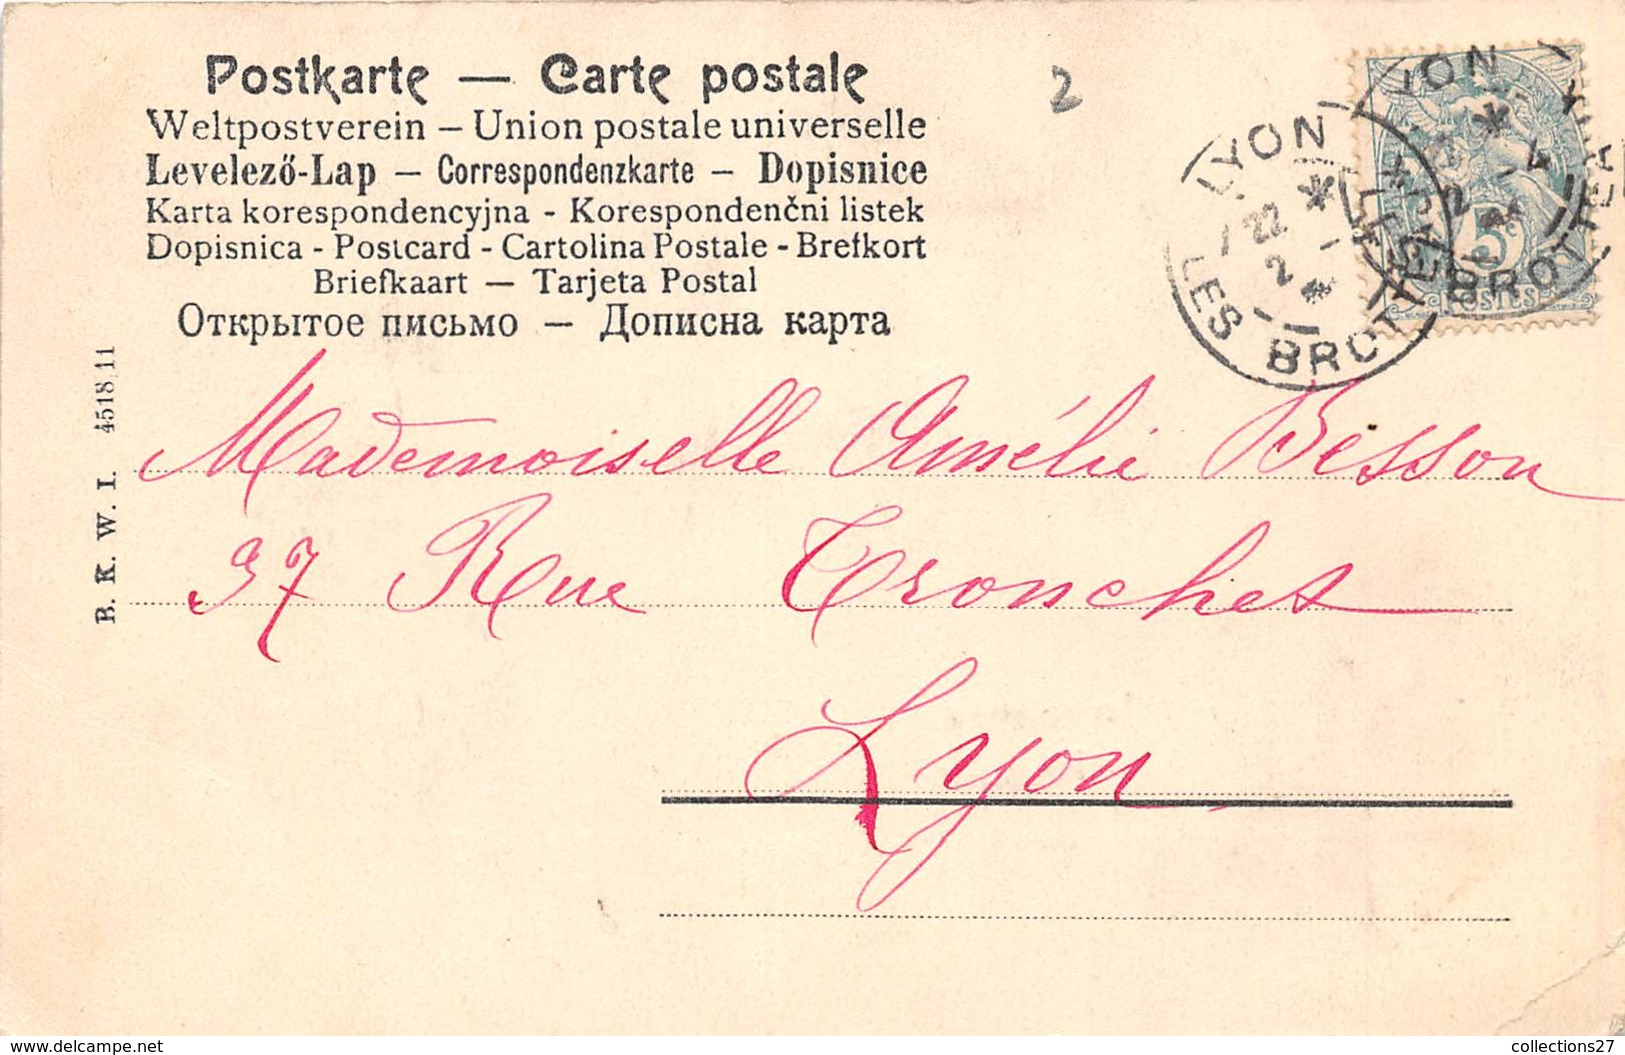 Postkarte — Carte postale
2
Weltpostverein – Union postale universelle
Levelező-Lap – Correspondenzkarte – Dopisnice
Karta korespondencyjna - Korespondenčni listek
Dopisnica - Postcard - Cartolina Postale - Brefkort
Briefkaart — Tarjeta Postal
Открытое письмо — Дописна карта
LYON
22
2
LES BROTTEAUX
LYON
LES BROTTEAUX
5
POSTES
B. K. W. I. 4518/11
Mademoiselle Amélie Besson
37 Rue Tronchet
Lyon
delcampe.net
collections27